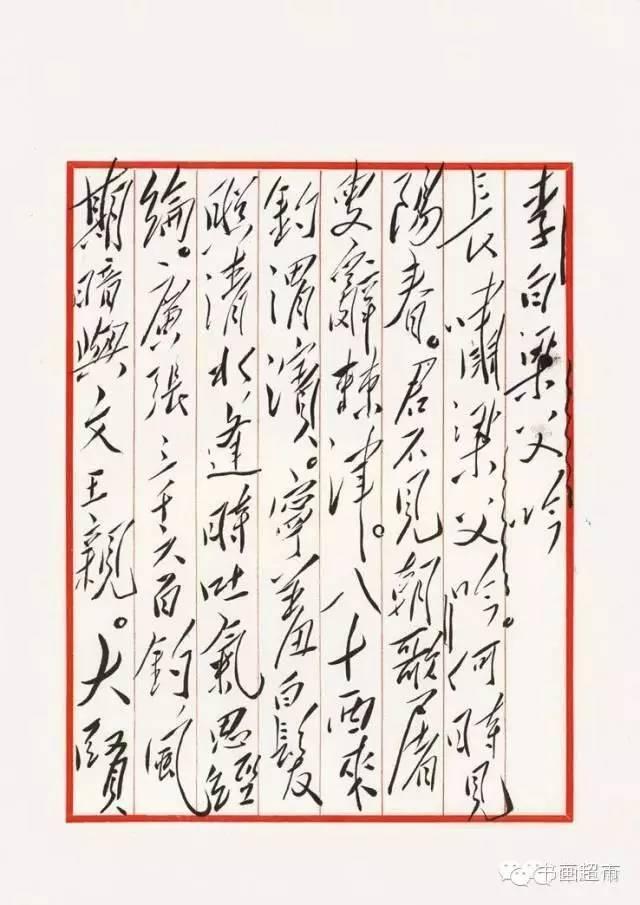 李白梁父吟
長嘯梁父吟。何時見
陽春。君不見朝歌屠
叟辭棘津。八十西來
釣渭濱。寧羞白髮
照清水逢時吐氣思經
綸。廣張三千六百釣風
期暗與文王親。大賢
书画超市